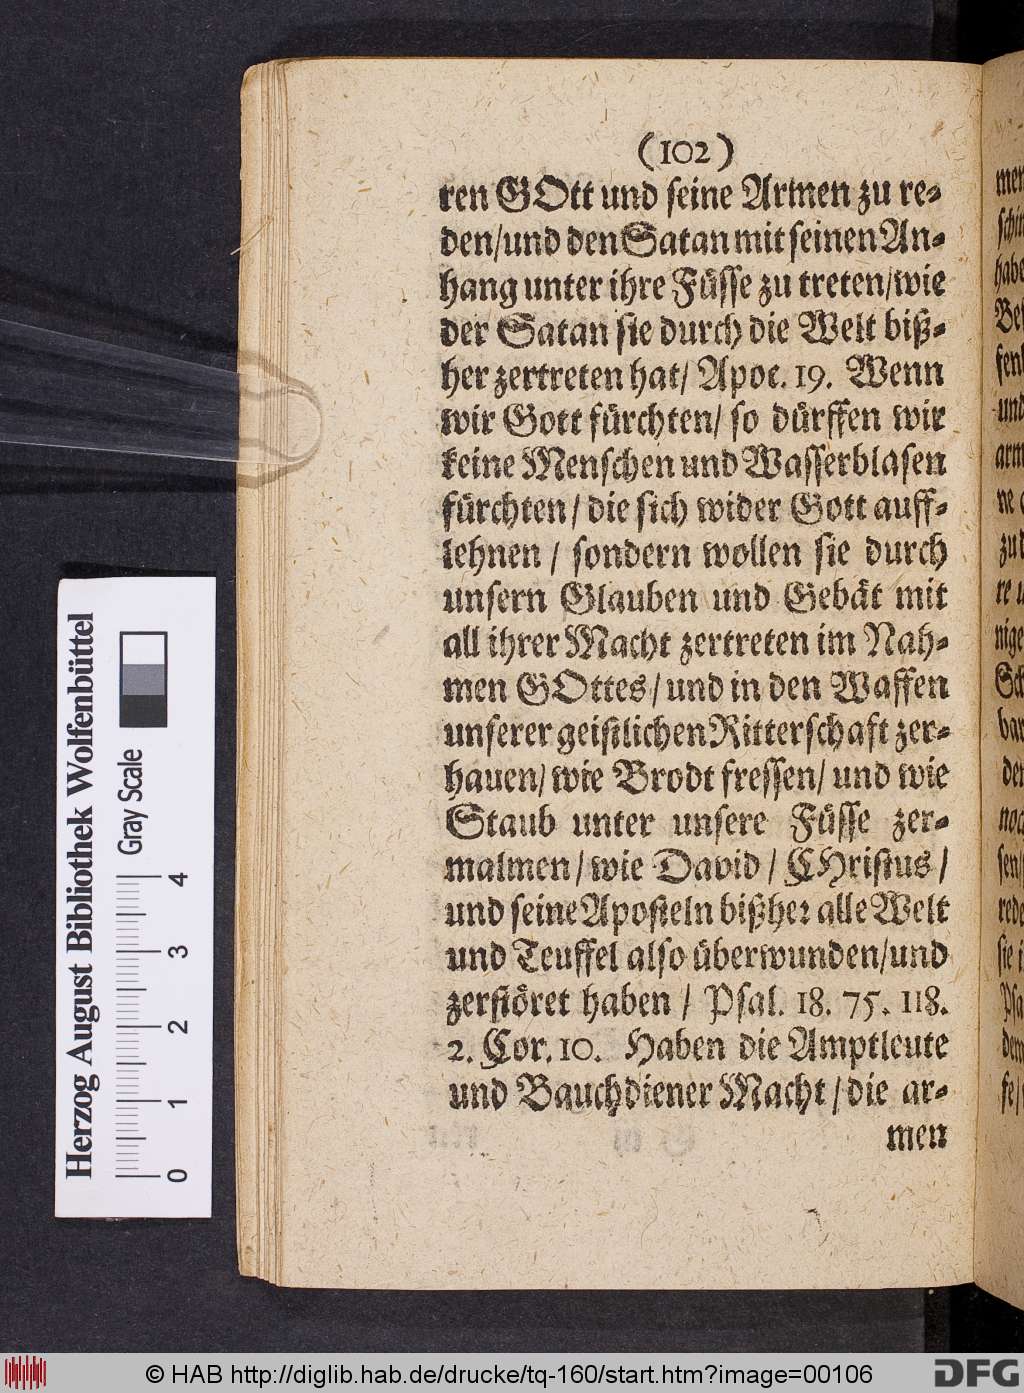 (102)
ren GOtt und seine Armen zu re-
den/und den Satan mit seinen An-
hang unter ihre Füsse zu treten/wie
der Satan sie durch die Welt biß-
her zertreten hat/ Apoc. 19. Wenn
wir Gott fürchten/ so dürffen wir
keine Menschen und Wasserblasen
fürchten / die sich wider Gott auff-
lehnen / sondern wollen sie durch
unsern Glauben und Gebät mit
all ihrer Macht zertreten im Nah-
men GOttes/ und in den Waffen
unserer geistlichen Ritterschaft zer-
hauen/ wie Brodt fressen/ und wie
Staub unter unsere Füsse zer-
malmen / wie David / CHristus /
und seine Aposteln bißher alle Welt
und Teuffel also überwunden/und
zerstöret haben / Psal. 18. 75. 118.
2. Cor. 10. Haben die Amptleute
und Bauchdiener Macht / die ar-
men
men
habe
und
zu d
re u
nige
bar
den
noc
sen/
rede
sie i
Psa
Herzog August Bibliothek Wolfenbüttel
Gray Scale
0 1 2 3 4
© HAB http://diglib.hab.de/drucke/tq-160/start.htm?image=00106
DFG